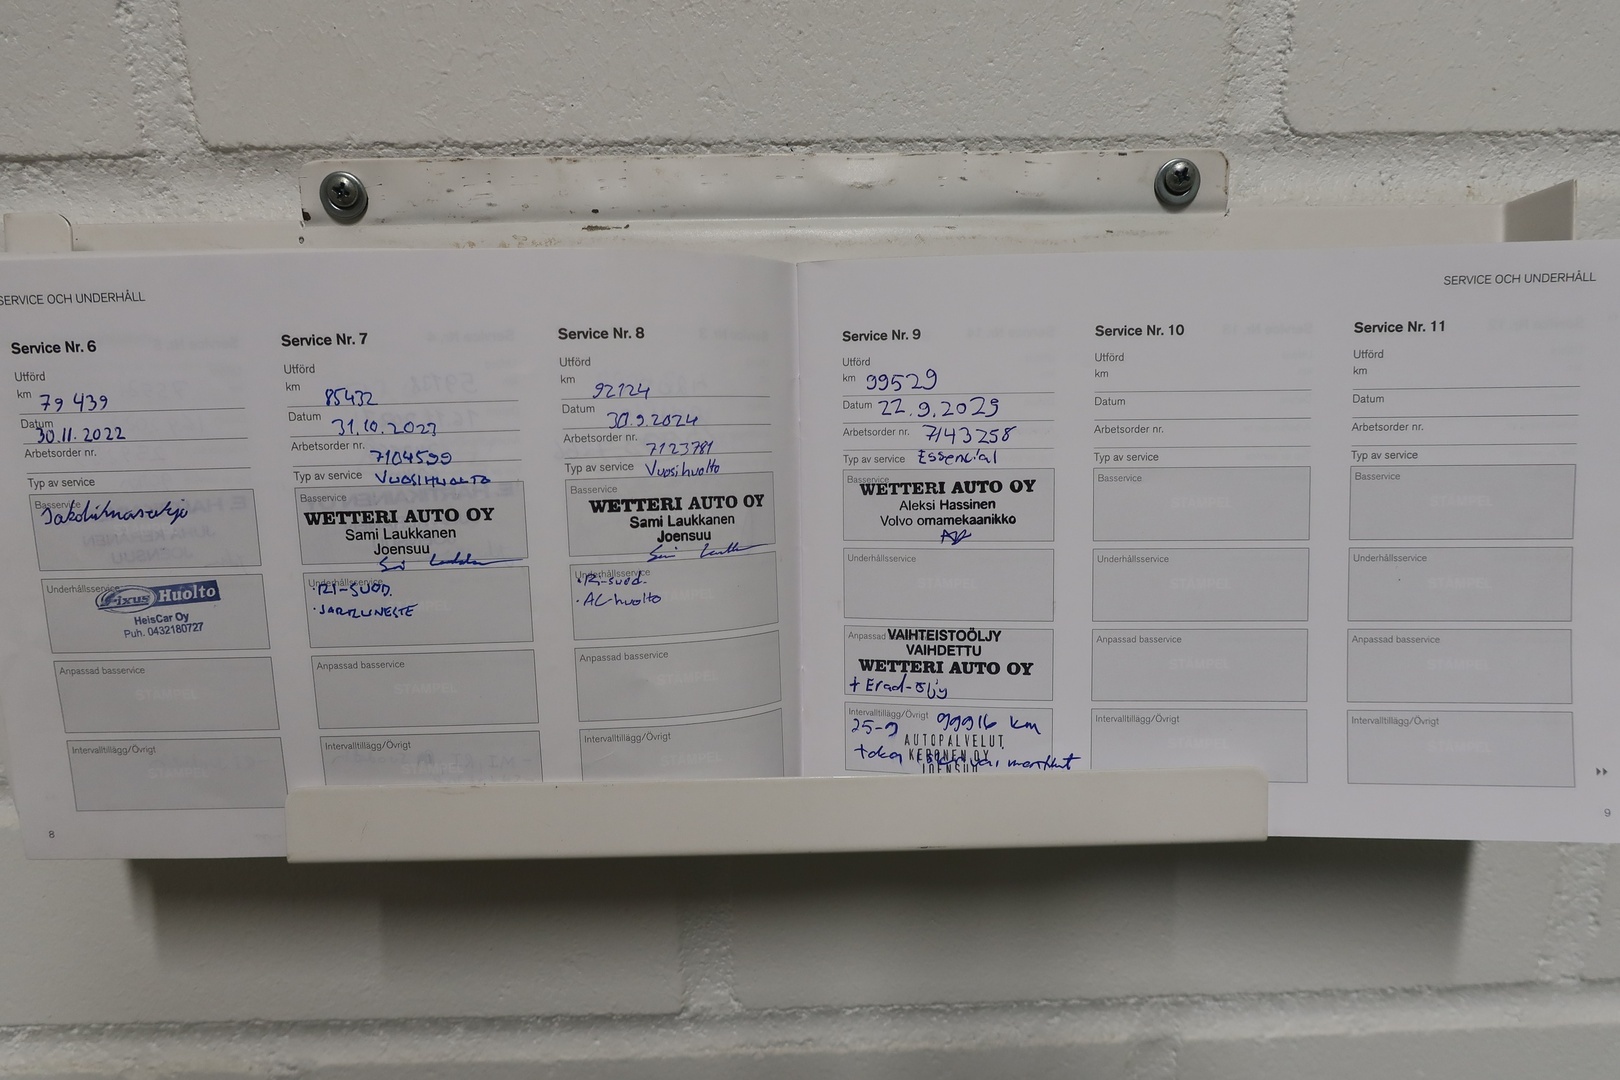 SERVICE OCH UNDERHÅLL
Service Nr. 6
Utförd
km 79 439
Datum 30.11.2022
Arbetsorder nr.
Typ av service
Basservice
Jakohihnasarja
Underhållsservice
Fixus Huolto
HeisCar Oy
Puh. 0432180727
Anpassad basservice
STÄMPEL
Intervalltillägg/Övrigt
STÄMPEL
8
Service Nr. 7
Utförd
km 85432
Datum 31.10.2023
Arbetsorder nr. 7104599
Typ av service VUOSIHUOLTO
Basservice
WETTERI AUTO OY
Sami Laukkanen
Joensuu
Underhållsservice
· RI-SUOD.
· JARRUNESTE
Anpassad basservice
STÄMPEL
Intervalltillägg/Övrigt
STÄMPEL
Service Nr. 8
Utförd
km 92124
Datum 30.9.2024
Arbetsorder nr. 7123781
Typ av service Vuosihuolto
Basservice
WETTERI AUTO OY
Sami Laukkanen
Joensuu
Underhållsservice
· Ri-suod.
· AC-huolto
Anpassad basservice
STÄMPEL
Intervalltillägg/Övrigt
STÄMPEL
SERVICE OCH UNDERHÅLL
Service Nr. 9
Utförd
km 99529
Datum 22.9.2025
Arbetsorder nr. 7143258
Typ av service Essencial
Basservice
WETTERI AUTO OY
Aleksi Hassinen
Volvo omamekaanikko
Underhållsservice
STÄMPEL
Anpassad
VAIHTEISTOÖLJY
VAIHDETTU
WETTERI AUTO OY
+ Erad-öljy
Intervalltillägg/Övrigt
25-9 99916 km
AUTOPALVELUT
KERÄNEN OY
JOENSUU
Service Nr. 10
Utförd
km
Datum
Arbetsorder nr.
Typ av service
Basservice
STÄMPEL
Underhållsservice
STÄMPEL
Anpassad basservice
STÄMPEL
Intervalltillägg/Övrigt
STÄMPEL
Service Nr. 11
Utförd
km
Datum
Arbetsorder nr.
Typ av service
Basservice
STÄMPEL
Underhållsservice
STÄMPEL
Anpassad basservice
STÄMPEL
Intervalltillägg/Övrigt
STÄMPEL
9